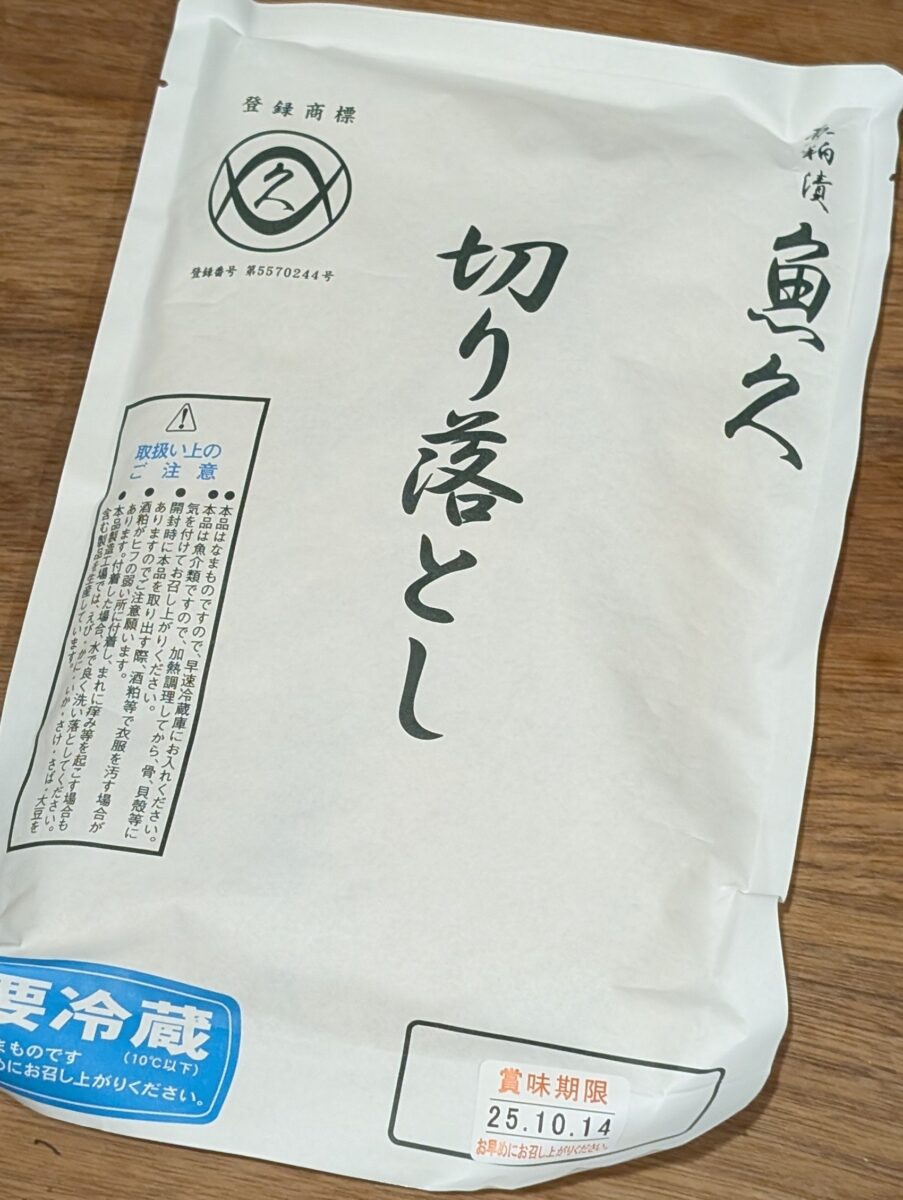 登録商標
久
登録番号 第5570244号
粕漬
魚久
切り落とし
取扱い上の
ご注意
●本品はなまものですので、早速冷蔵庫にお入れください。
●本品は魚介類ですので、加熱調理してから、骨、貝殻等に
気を付けてお召し上がりください。
●開封時に本品を取り出す際、酒粕等で衣服を汚す場合が
ありますのでご注意願います。
●酒粕がヒフの弱い所に付着し、まれに痒み等を起こす場合も
あります。付着した場合、水で良く洗い落としてください。
●本品製造工場では、えび・かに・いか・さけ・さば・大豆を
含む製品を生産しています。
要冷蔵
(10℃以下)
まものです
めにお召し上がりください。
賞味期限
25.10.14
お早めにお召し上がりください。